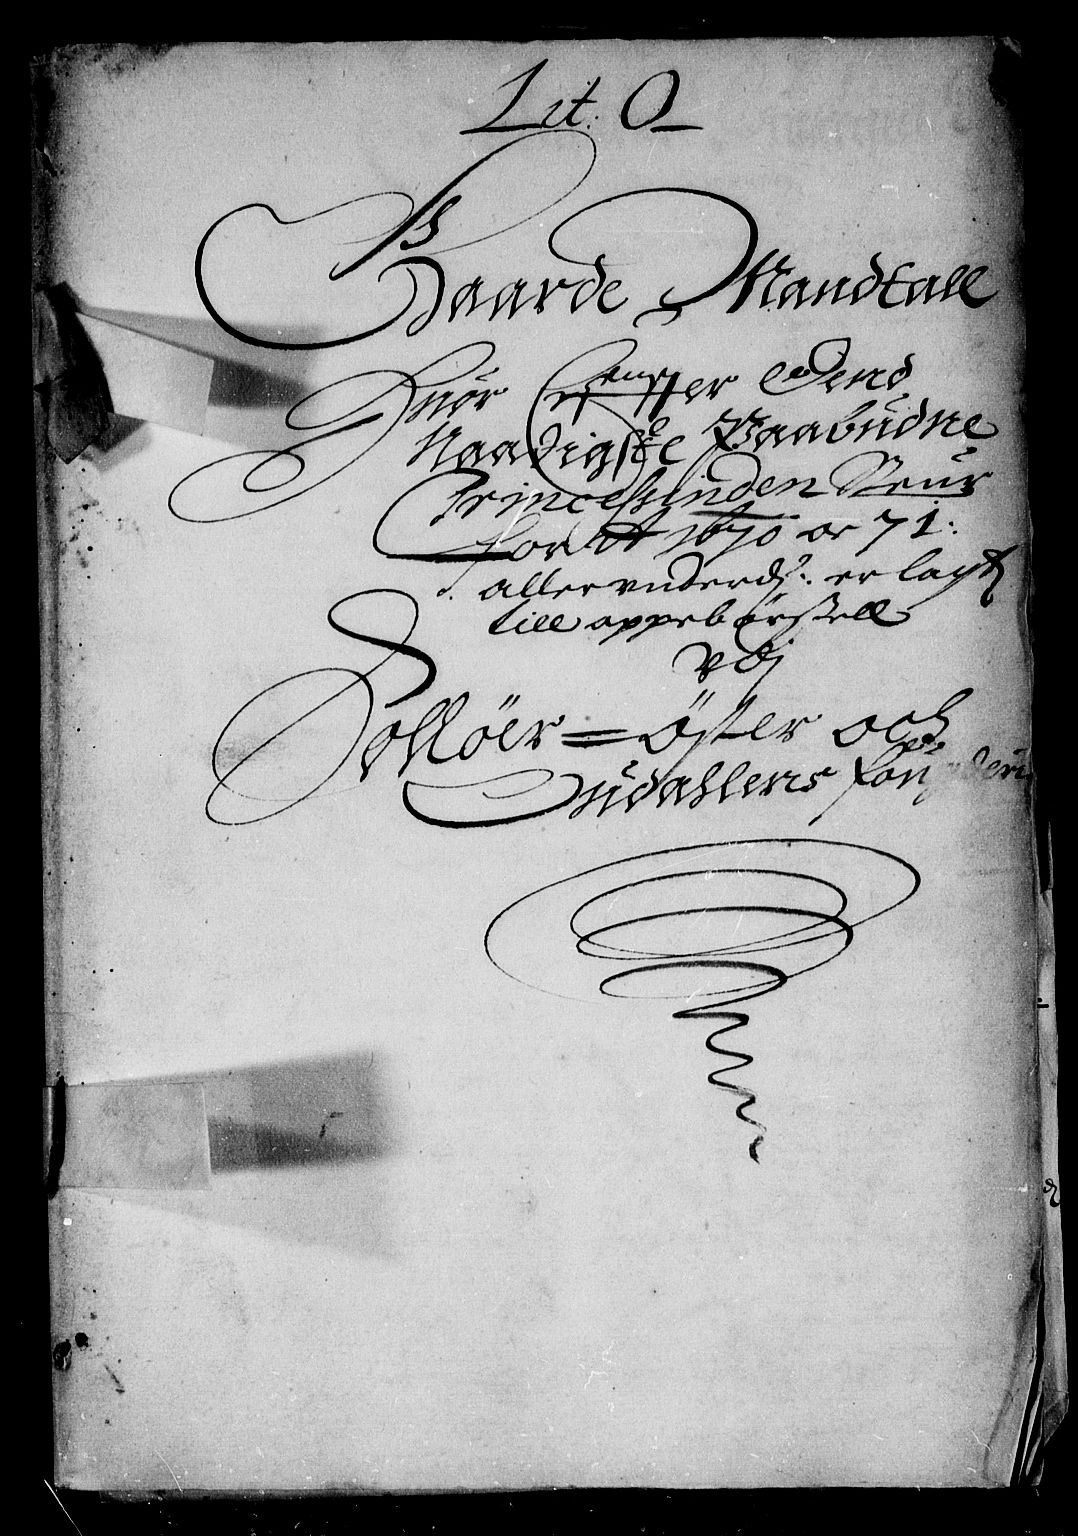 Lit: O
Gaarde Mandtall
Huor Effter Dend
Naadigste Paabudne
Princessinden Steur
for Ao 1670 oc 71:
allerunderds: er lagt
till oppebørsell
vdj
Solløer = Öster och
Uudahlens fougderi